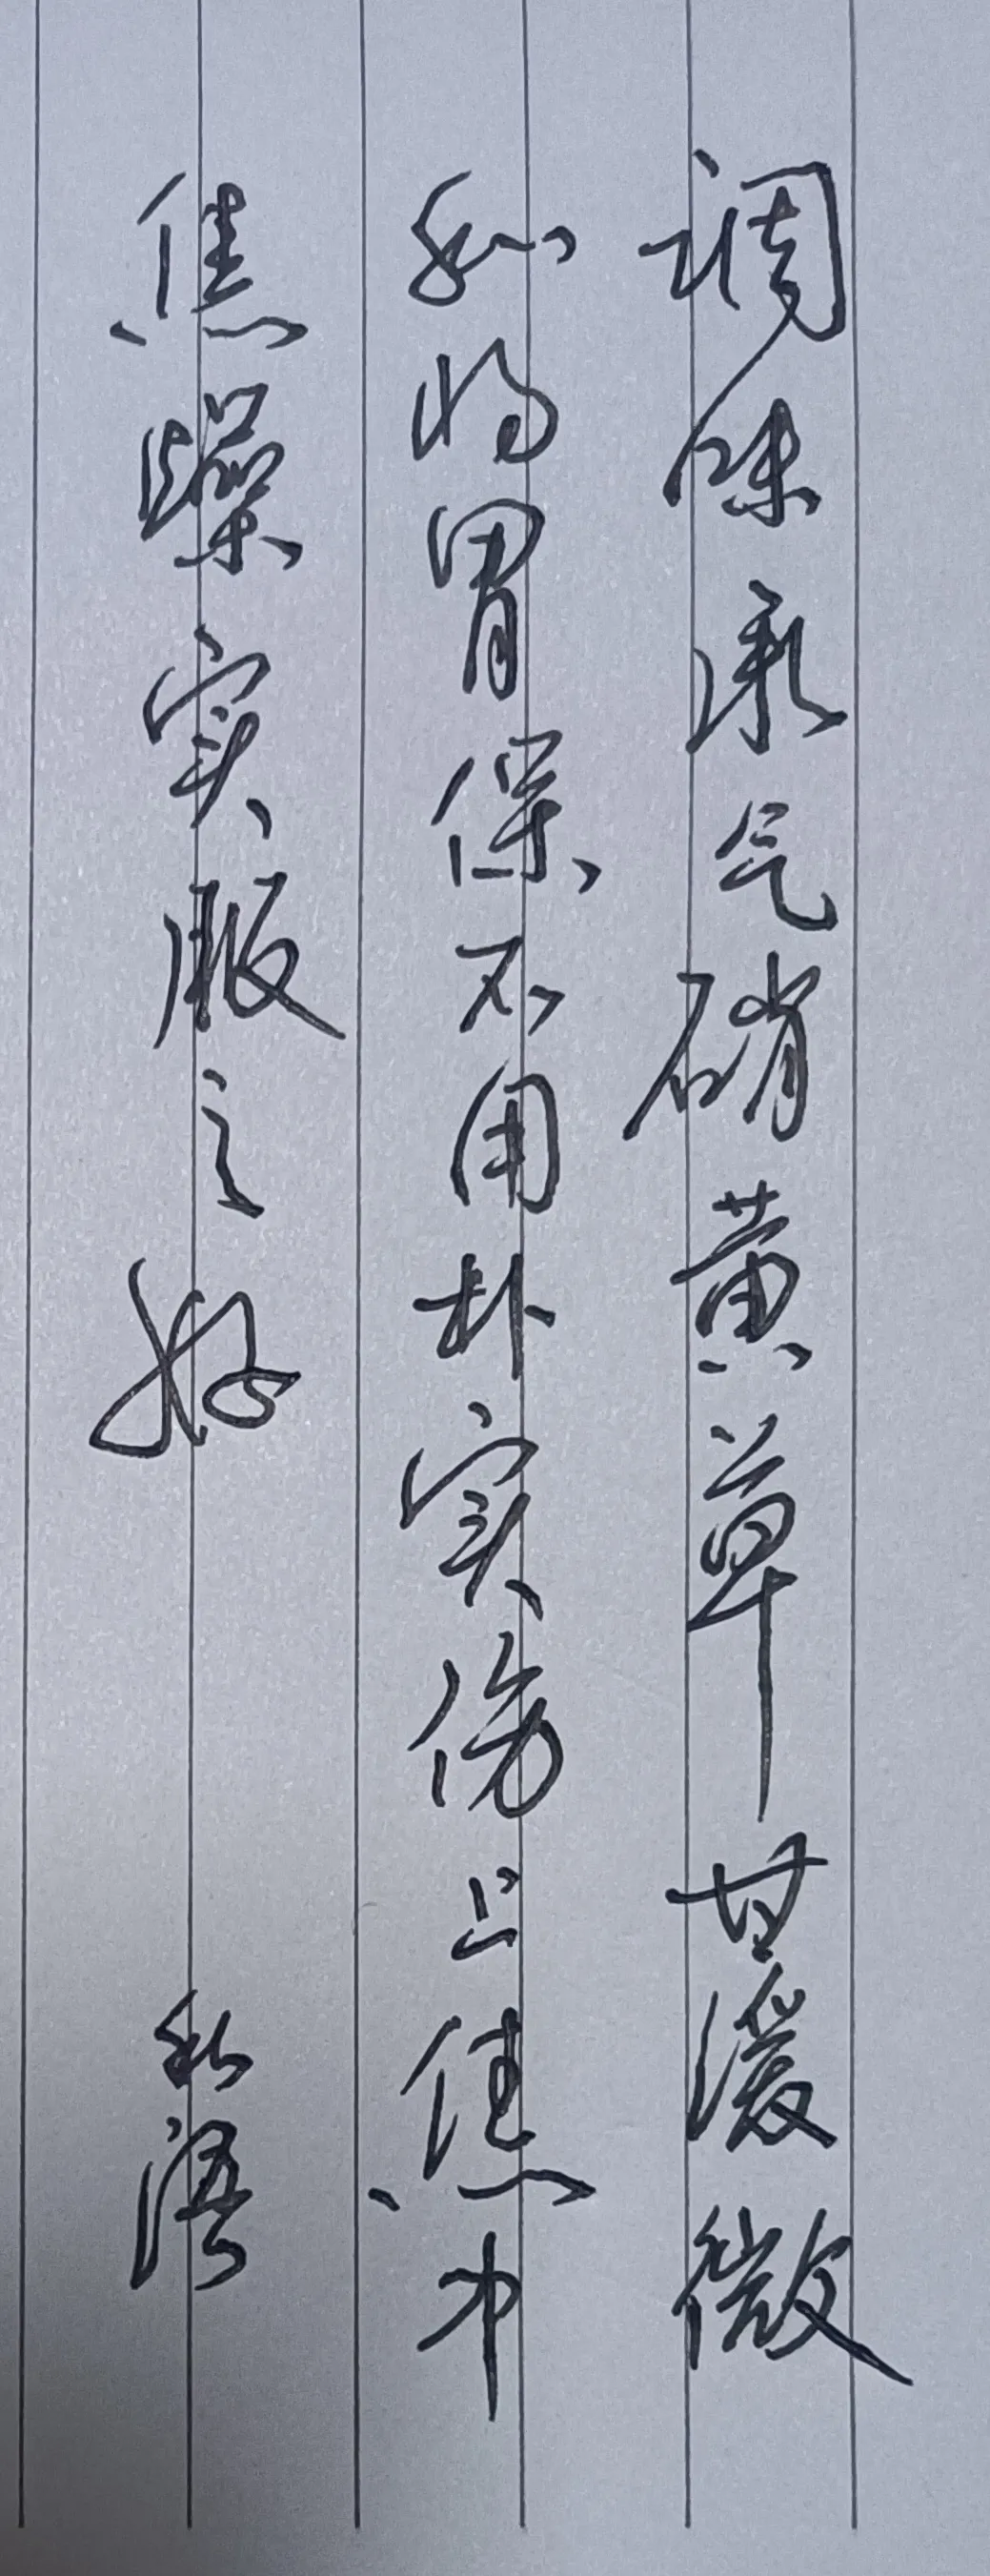 调味承气硝黄草甘缓微
和将胃保不用朴实伤上焦中
焦燥实服之好